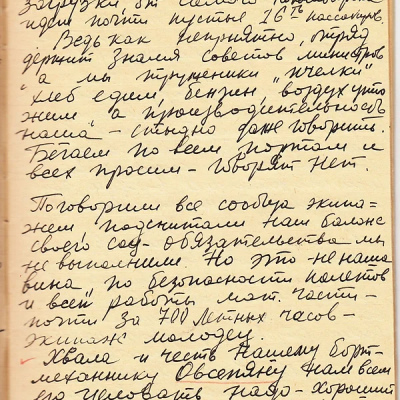 загрузки, от самого
идем почти пустые 16ть пассажиров.
Ведь как неприятно, отряд
держит Знамя советов министров
а мы трутеники "пчелки"
хлеб едим, бензин, воздух унто
жим, а производительность
наша - стыдно даже говорить.
Бегаем по всем портам и
всех просим - говорят нет.
Поговорили все сообща экипа-
жем, подсчитали наш баланс
своего соц-обязательства мы
не выполнили. Но это не наша
вина, по безопасности полетов
и всей работы мат. части -
почти за 700 летных часов -
экипаж молодец.
Хвала и честь нашему борт-
механнику Овсепяну нам всем
его целовать надо - хороший